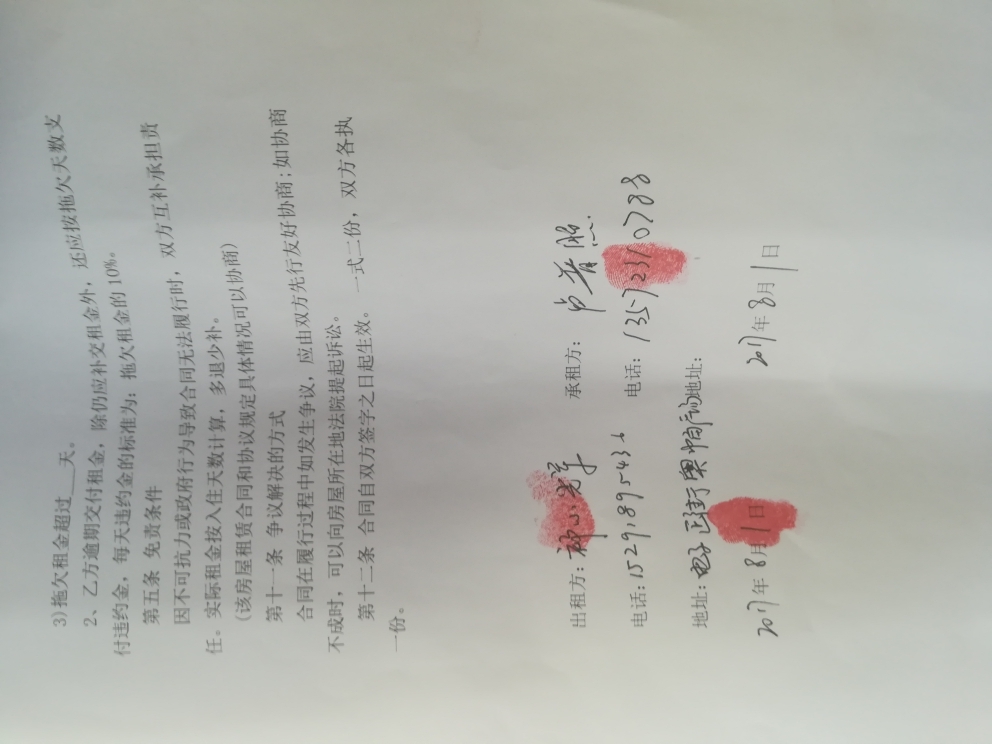 3)拖欠租金超过___天。
2、乙方逾期交付租金，除仍应补交租金外，还应按拖欠天数支
付违约金，每天违约金的标准为：拖欠租金的10%。
第五条 免责条件
因不可抗力或政府行为导致合同无法履行时，双方互补承担责
任。实际租金按入住天数计算，多退少补。
（该房屋租赁合同和协议规定具体情况可以协商）
第十一条 争议解决的方式
合同在履行过程中如发生争议，应由双方先行友好协商；如协商
不成时，可以向房屋所在地法院提起诉讼。
第十二条 合同自双方签字之日起生效。一式二份，双方各执
一份。
出租方： 承租方：
电话：15291895436 电话：13572310788
地址：电子正街 地址：
2017年8月1日 2017年8月1日